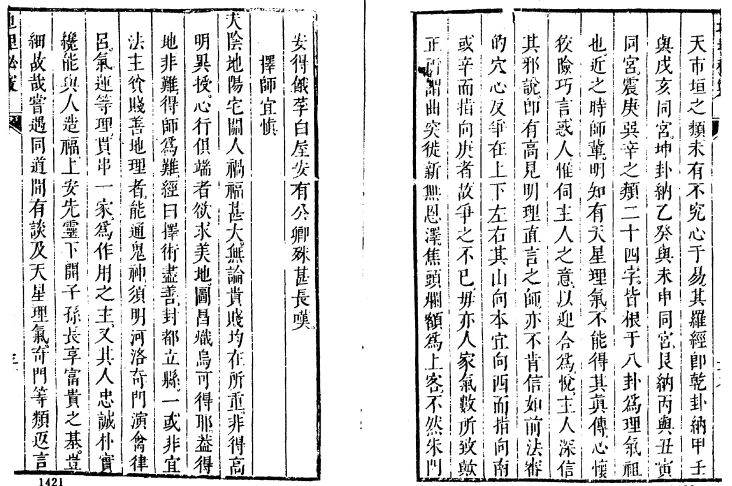 天市垣之類未有不究心于易其羅經卽乾卦納甲壬
與戌亥同宮坤卦納乙癸與未申同宮艮納丙與丑寅
同宮震庚巽辛之類二十四字皆根于八卦爲理氣祖
也近之時師輩明知有天星理氣不能得其眞傳心懷
狡險巧言惑人惟伺主人之意以迎合爲悅主人深信
其邪說卽有高見明理直言之師亦不肯信如前法審
的穴心反爭在上下左右其山向本宜向酉而指向南
或辛而指向庚者故爭之不已毋亦人家氣數所致歟
正所謂曲突徙新無恩澤焦頭爛額爲上客不然朱門
安得餓莩白屋安有公卿殊甚長嘆
擇師宜慎
夫陰地陽宅關人禍福甚大無論貴賤均在所重非得高
明異授心行俱端者欲求美地圖昌熾烏可得耶益得
地非難得師爲難經曰擇術盡善封都立縣一或非宜
法主貧賤善地理者能通鬼神須明河洛奇門演禽律
呂氣運等理貫串一家爲作用之主又其人忠誠朴實
纔能與人造福上安先靈下開子孫長享富貴之基豈
細故哉嘗遇同道間有談及天星理氣奇門等類返言
三
1421